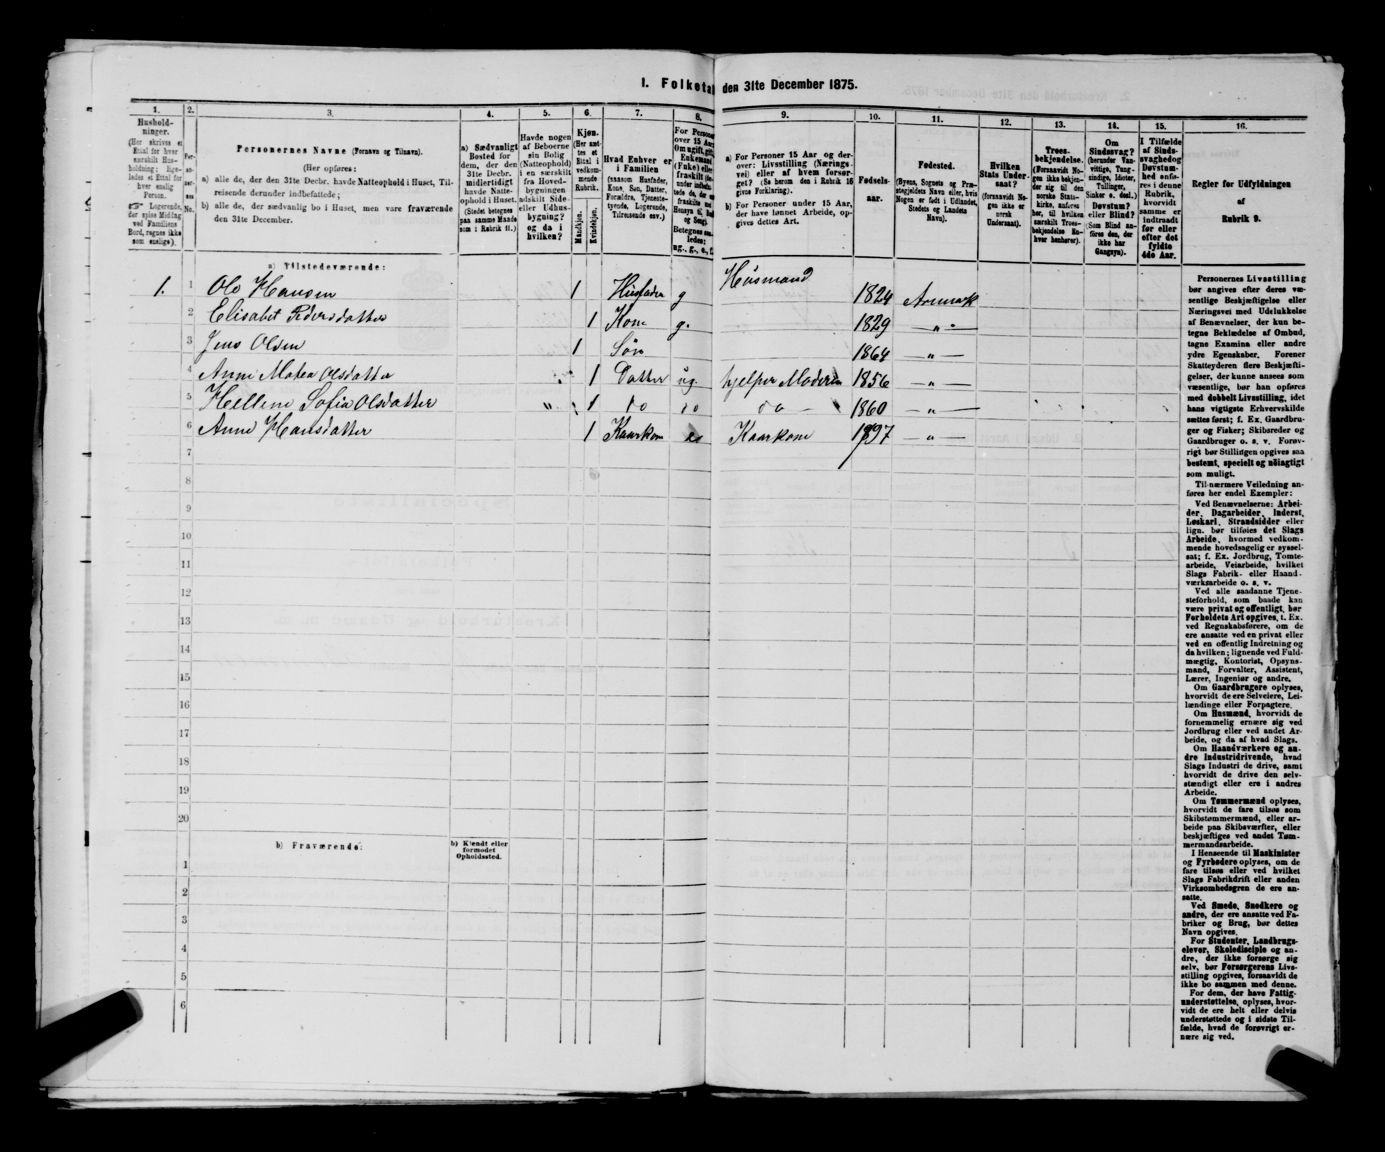 I. Folketal den 31te December 1875.
1. 2. 3. 4. 5. 6. 7. 8. 9. 10. 11. 12. 13. 14. 15. 16.
Husholdninger.
(Her skrives et Ettal for hver særskilt Husholdning; ligeledes et Ettal for hver enslig Person.
Logerende, der spise Middag ved Familiens Bord, regnes ikke som enslige).
Personernes No.
Personernes Navne (Fornavn og Tilnavn).
(Her opføres:
a) alle de, der den 31te Decbr. havde Natteophold i Huset, Tilreisende derunder indbefattede;
b) alle de, der sædvanlig bo i Huset, men vare fraværende den 31te December.
a) Sædvanligt Bosted for dem, der den 31te Decbr. midlertidigt havde Natteophold i Huset.
(Stedet betegnes paa samme Maade som i Rubrik 11.)
Havde nogen af Beboerne sin Bolig (Natteophold) i en særskilt fra Hovedbygningen adskilt Side- eller Udhusbygning? og da i hvilken?
Kjøn.
(Her sættes et Ettal i vedkommende Rubrik.
Mandkjøn. Kvindekjøn.
Hvad Enhver er i Familien
(saasom Husfader, Kone, Søn, Datter, Forældre, Tjenestetyende, Logerende, Tilreisende osv.)
a) For Personer 15 Aar og derover: Livsstilling (Næringsvei) eller af hvem forsørget? (Se herom den i Rubrik 16 givne Forklaring).
b) For Personer under 15 Aar, der have lønnet Arbeide, opgives dettes Art.
Fødselsaar.
Fødested.
(Byens, Sognets og Præstegjeldets Navn eller, hvis Nogen er født i Udlandet, Stedets og Landets Navn).
Hvilken Stats Undersaat?
(forsaavidt Nogen ikke er norsk Undersaat).
Troesbekjendelse.
(Forsaavidt Nogen ikke bekjender sig til den norske Statskirke, anføres her, til hvilken særskilt Troesbekjendelse Enhver henhører).
Om Sindssvag?
(herunder Vanvittige, Tungsindige, Idioter, Tullinger, Sinker o. desl.)
Døvstum? eller Blind?
(Som Blind anføres den, der ikke har Gangsyn).
I Tilfælde af Sindssvaghed og Døvstumhed anføres i denne Rubrik, hvorvidt samme er indtraadt før eller efter det fyldte 4de Aar.
Regler for Udfyldningen af Rubrik 9.
a) Tilstedeværende:
1. 1 Ole Hansen 1 Husfader g Husmand 1824 Aremark
2 Elisabet Pedersdatter 1 Kone g. 1829 — „ —
3 Jens Olsen 1 Søn 1864 — „ —
4 Anne Matea Olsdatter 1 Datter ug. hjelper Moderen 1856 — „ —
5 Hellene Sofia Olsdatter „ 1 do do do — 1860 — „ —
6 Anne Hansdatter 1 Kaarkone Kaarkone 1797 — „ —
7
8
9
10
11
12
13
14
15
16
17
18
19
20
b) Fraværende:
b) Kjendt eller formodet Opholdssted.
1
2
3
4
5
6
Personernes Livsstilling
bør angives efter deres væ-
sentlige Beskjæftigelse eller
Næringsvei med Udelukkelse
af Benævnelser, der kun be-
tegne Beklædelse af Ombud,
tagne Examina eller andre
ydre Egenskaber. Forener
Skatteyderen flere Beskjæfti-
gelser, der kunne ansees som
væsentlige, bør han opføres
med dobbelt Livsstilling, idet
hans vigtigste Erhvervskilde
sættes først; f. Ex. Gaardbru-
ger og Fisker; Skibsreder og
Gaardbruger o. s. v. Forøv-
rigt bør Stillingen opgives saa
bestemt, specielt og nøiagtigt
som muligt.
Til nærmere Veiledning an-
føres her endel Exempler:
Ved Benævnelserne: Arbei-
der, Dagarbeider, Inderst,
Løskarl, Strandsidder eller
lign. bør tilføies det Slags
Arbeide, hvormed vedkom-
mende hovedsagelig er syssel-
sat; f. Ex. Jordbrug, Tomte-
arbeide, Veiarbeide, hvilket
Slags Fabrik- eller Haand-
værksarbeide o. s. v.
Ved alle saadanne Tjene-
steforhold, som baade kan
være privat og offentligt, bør
Forholdets Art opgives, t. Ex.
ved Regnskabsførere, om de
ere ansatte ved en privat eller
ved en offentlig Indretning og
da hvilken; lignende ved Fuld-
mægtig, Kontorist, Opsyns-
mand, Forvalter, Assistent,
Lærer, Ingeniør og andre.
Om Gaardbrugere oplyses,
hvorvidt de ere Selveiere, Lei-
lændinge eller Forpagtere.
Om Husmænd, hvorvidt de
fornemmelig ernære sig ved
Jordbrug eller ved andet Ar-
beide, og da af hvad Slags.
Om Haandværkere og an-
dre Industridrivende, hvad
Slags Industri de drive, samt
hvorvidt de drive den selv-
stændigt eller ere i andres
Arbeide.
Om Tømmermænd oplyses,
hvorvidt de fare tilsøs som
Skibstømmermænd, eller ar-
beide paa Skibsværfter, eller
beskjæftiges ved andet Tøm-
mermandsarbeide.
I Henseende til Maskinister
og Fyrbødere oplyses, om de
fare tilsøs eller ved hvilket
Slags Fabrikdrift eller anden
Virksomhedsgren de ere an-
satte.
Ved Smede, Snedkere og
andre, der ere ansatte ved Fa-
briker og Brug, bør dettes
Navn opgives.
For Studenter, Landbrugs-
elever, Skoledisciple og an-
dre, der ikke forsørge sig
selv, bør Forsørgerens Livs-
stilling opgives, forsaavidt de
ikke bo sammen med denne.
For dem, der have Fattig-
understøttelse, oplyses, hvor-
vidt de ere helt eller delvis
understøttede og i sidste Til-
fælde, hvad de forøvrigt er-
nære sig ved.